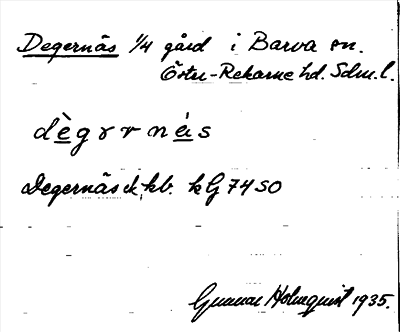 Degernäs 1/4 gård i Barva sn.
Öster-Rekarne hd. Sdm.l.
dègɤrnás
Degernäs ek. kb. kG 74 SO
Gunnar Holmquist 1935.